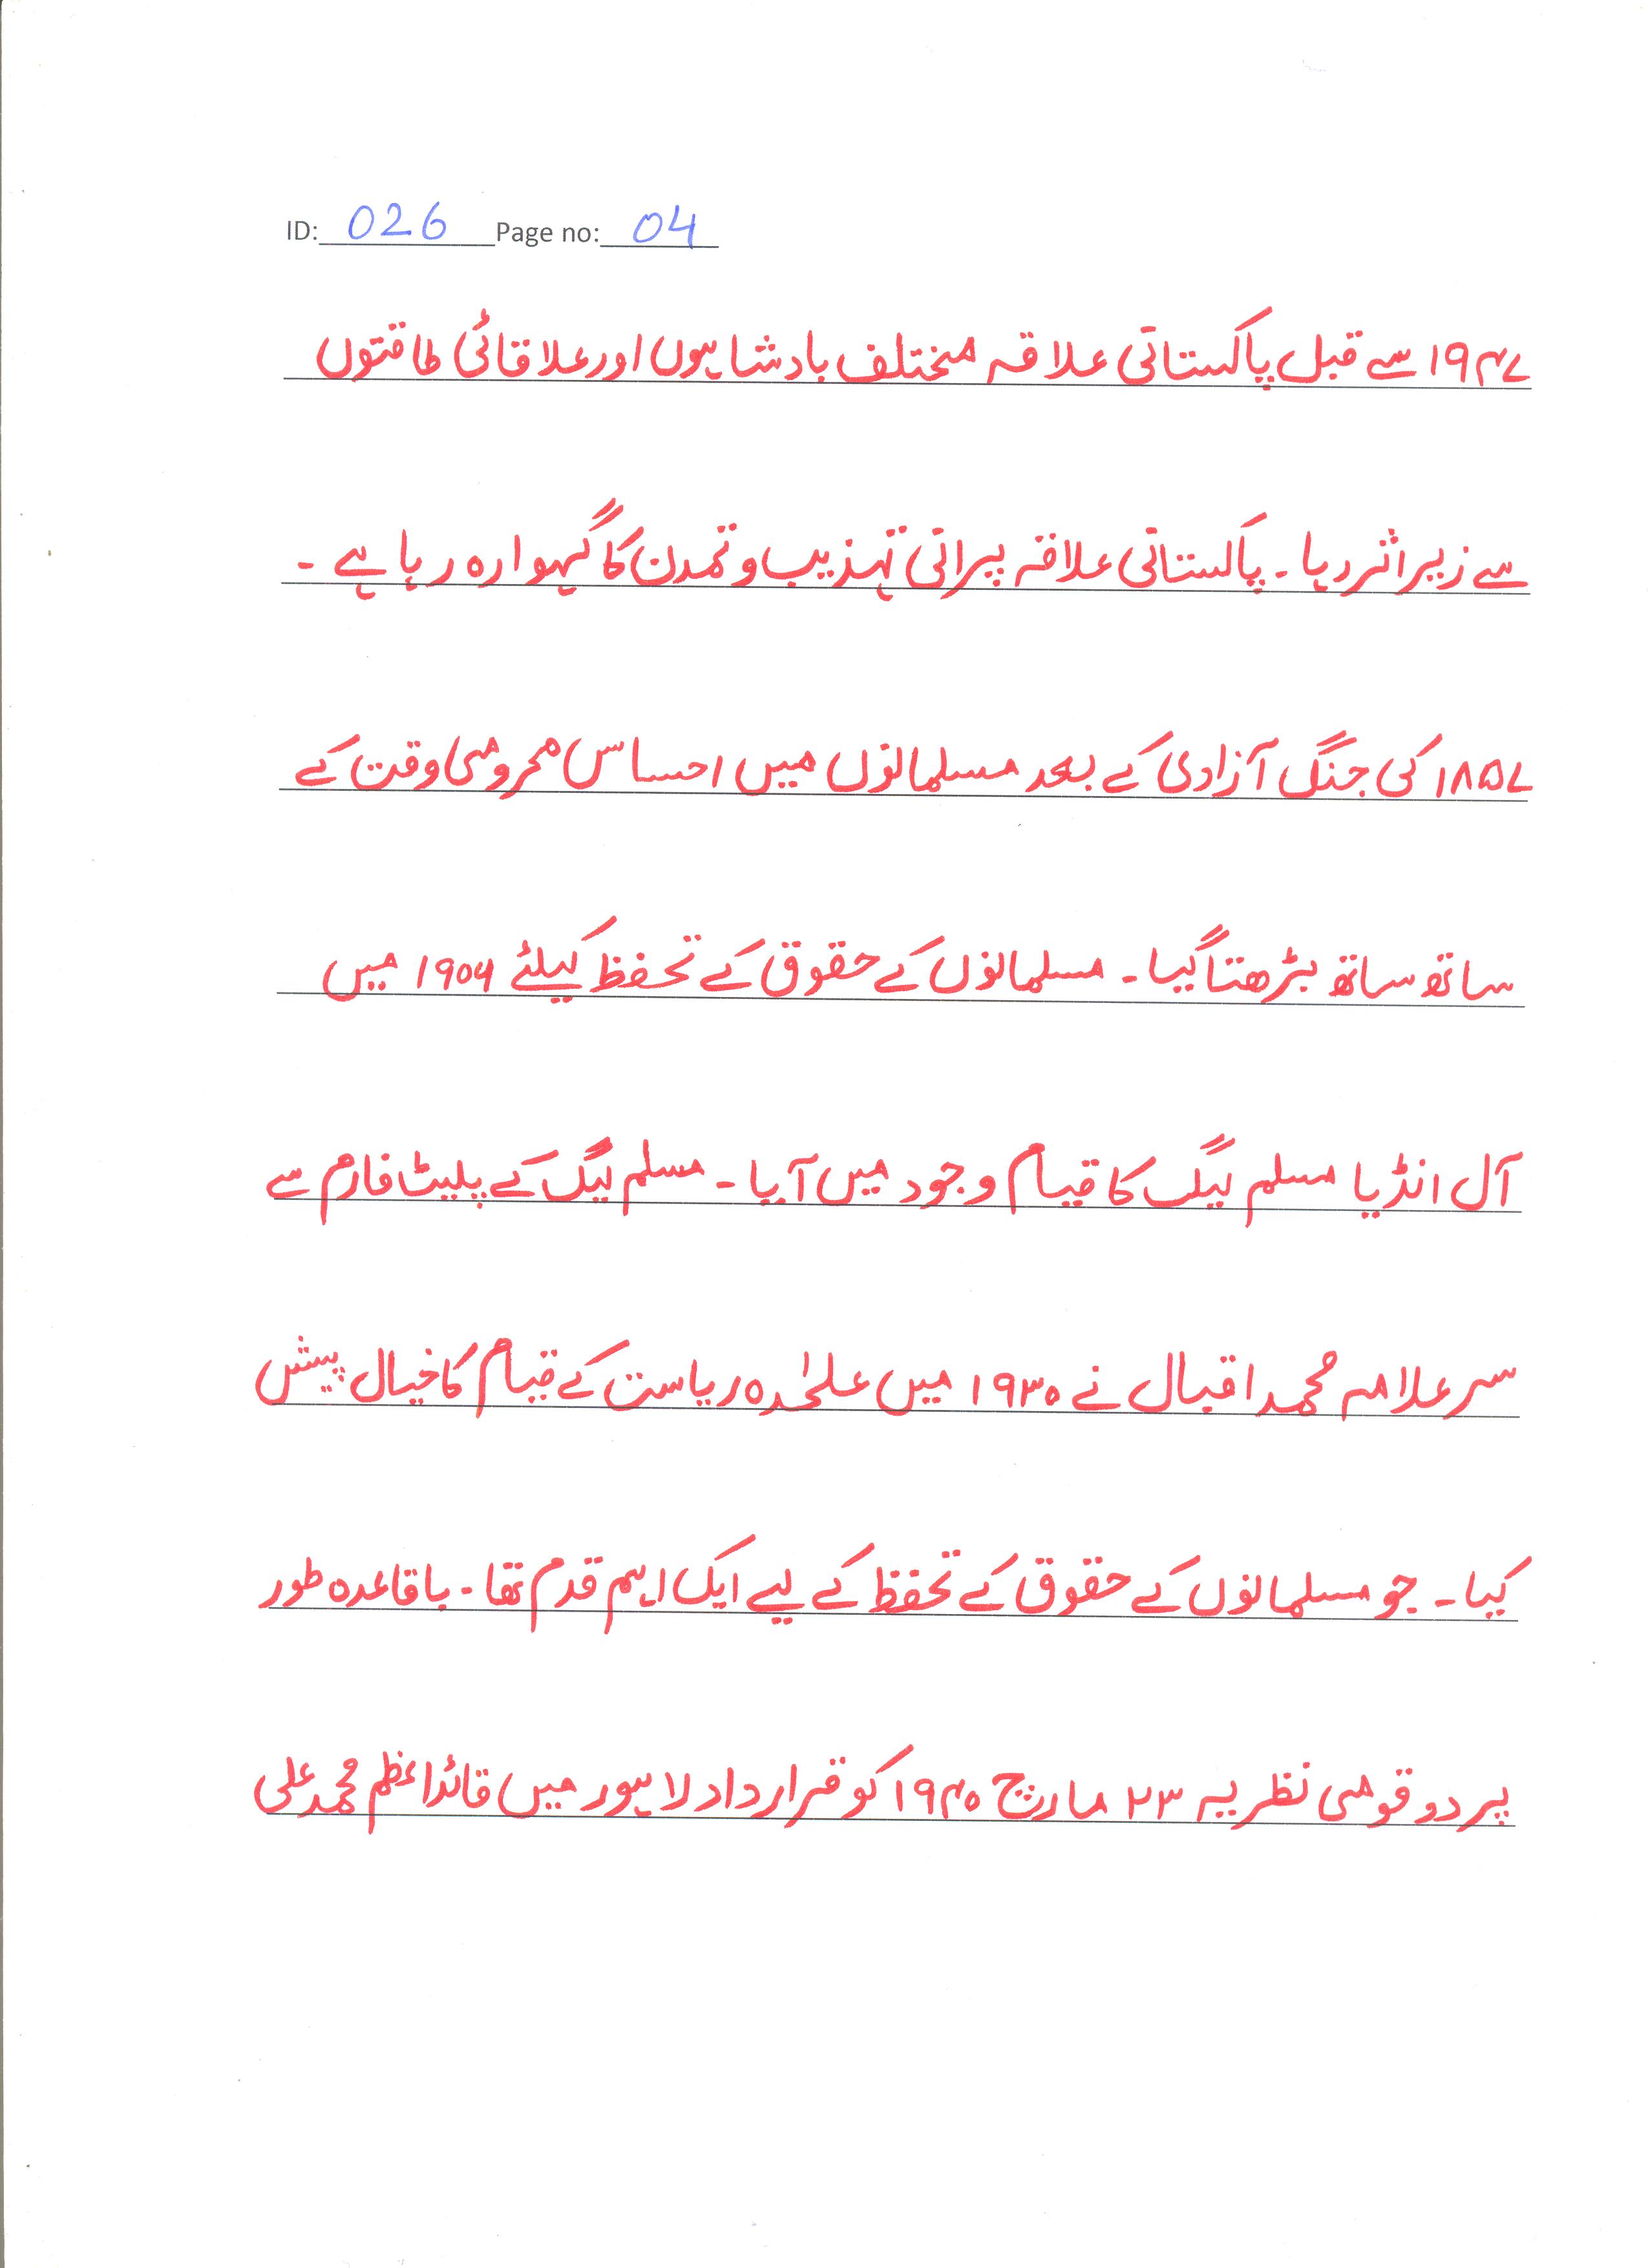 ID: 026 Page no: 04
۱۹۴۷ سے قبل پاکستانی علاقہ مختلف بادشاہوں اور علاقائی طاقتوں
سے زیر اثر رہا ۔ پاکستانی علاقہ پرانی تہذیب و تمدن کا گہوارہ رہا ہے ۔
۱۸۵۷ کی جنگ آزادی کے بعد مسلمانوں میں احساس محرومی وقت کے
ساتھ ساتھ بڑھتا گیا ۔ مسلمانوں کے حقوق کے تحفظ کیلئے ۱۹۰۶ میں
آل انڈیا مسلم لیگ کا قیام وجود میں آیا ۔ مسلم لیگ کے پلیٹ فارم سے
سر علامہ محمد اقبال نے ۱۹۳۰ میں علیٰحدہ ریاست کے قیام کا خیال پیش
کیا ۔ جو مسلمانوں کے حقوق کے تحفظ کے لیے ایک اہم قدم تھا ۔ باقاعدہ طور
پر دو قومی نظریہ ۲۳ مارچ ۱۹۴۰ کو قرارداد لاہور میں قائداعظم محمد علی